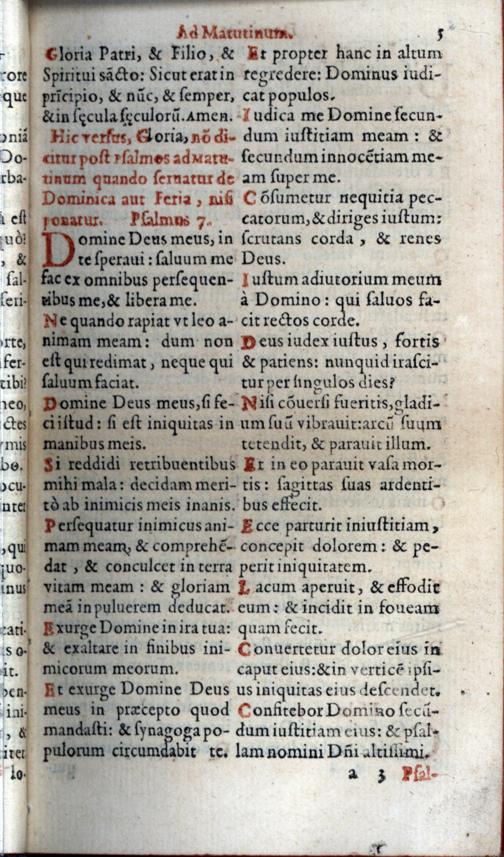 Ad Matutinum. 5
Gloria Patri, & Filio, &
Spiritui sãcto: Sicut erat in
prĩcipio, & nũc, & semper,
& in sęcula sęculorũ. Amen.
Hic versus, Gloria, nõ di-
citur post Psalmos ad Matu-
tinum quando seruatur de
Dominica aut Feria, nisi
ponatur. Psalmus 7.
Domine Deus meus, in
te speraui: saluum me
fac ex omnibus persequen-
tibus me, & libera me.
Ne quando rapiat vt leo a-
nimam meam: dum non
est qui redimat, neque qui
saluum faciat.
Domine Deus meus, si fe-
ci istud: si est iniquitas in
manibus meis.
Si reddidi retribuentibus
mihi mala: decidam meri-
tò ab inimicis meis inanis.
Persequatur inimicus ani-
mam meam, & comprehẽ-
dat, & conculcet in terra
vitam meam: & gloriam
meã in puluerem deducat.
Exurge Domine in ira tua:
& exaltare in finibus ini-
micorum meorum.
Et exurge Domine Deus
meus in præcepto quod
mandasti: & synagoga po-
pulorum circumdabit te.
Et propter hanc in altum
regredere: Dominus iudi-
cat populos.
Iudica me Domine secun-
dum iustitiam meam: &
secundum innocẽtiam me-
am super me.
Cõsumetur nequitia pec-
catorum, & diriges iustum:
scrutans corda, & renes
Deus.
Iustum adiutorium meum
à Domino: qui saluos fa-
cit rectos corde.
Deus iudex iustus, fortis
& patiens: nunquid irasci-
tur per singulos dies?
Nisi cõuersi fueritis, gladi-
um suũ vibrauit: arcũ suum
tetendit, & parauit illum.
Et in eo parauit vasa mor-
tis: sagittas suas ardenti-
bus effecit.
Ecce parturit iniustitiam,
concepit dolorem: & pe-
perit iniquitatem.
Lacum aperuit, & effodit
eum: & incidit in foueam
quam fecit.
Conuertetur dolor eius in
caput eius: & in verticẽ ipsi-
us iniquitas eius descendet.
Confitebor Domino secũ-
dum iustitiam eius: & psal-
lam nomini Dñi altissimi.
a 3 Psal-